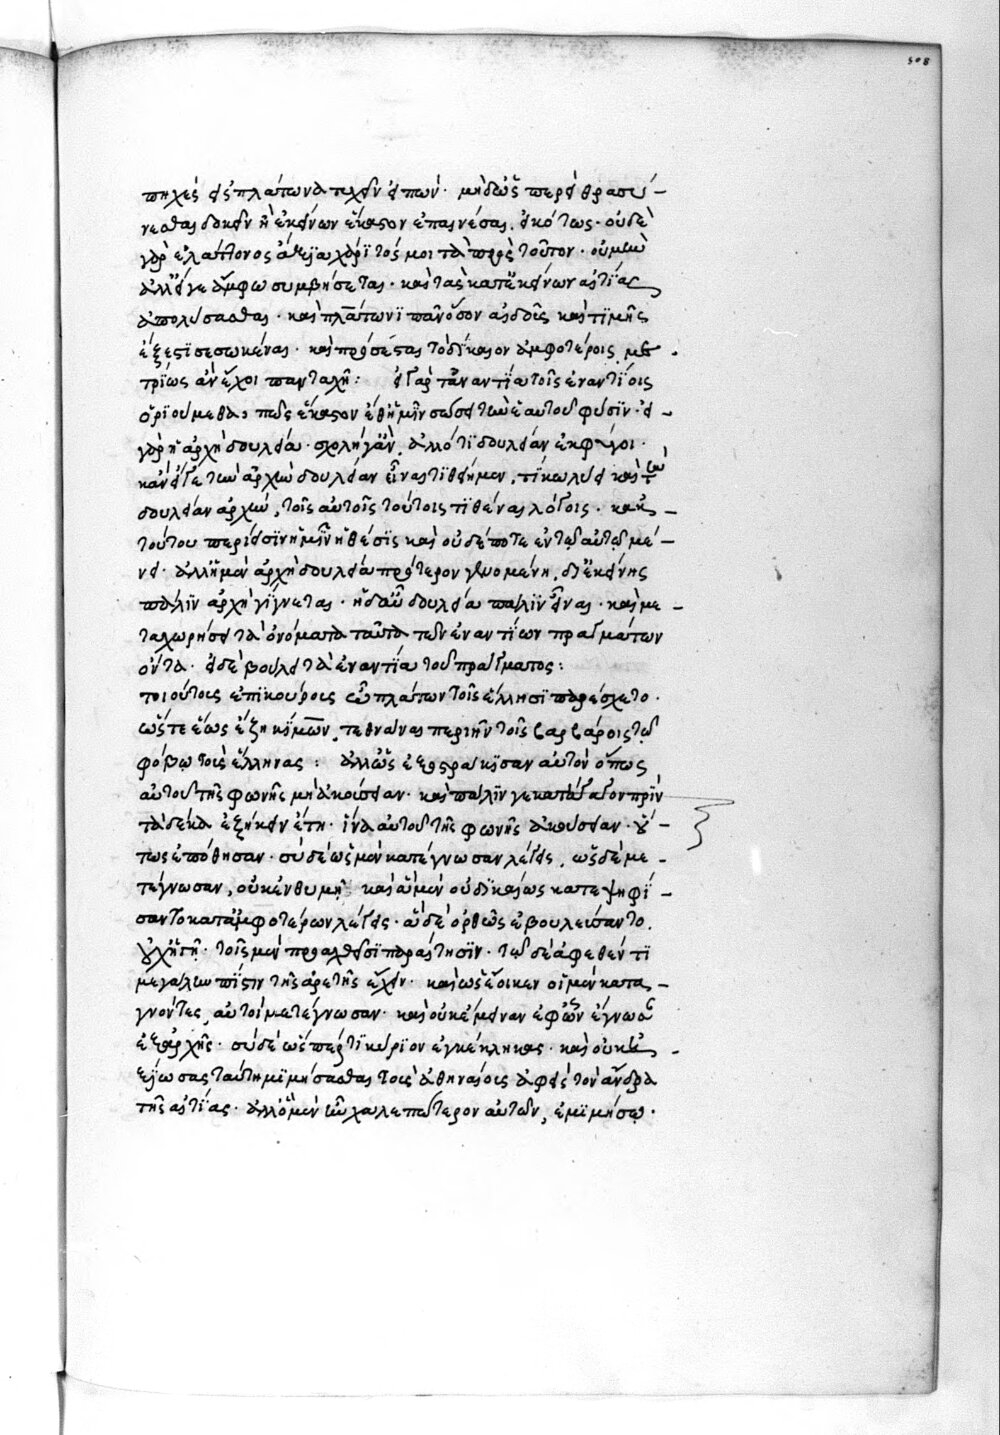 308
πῆχες εἰς πλάτωνα τελεῖν εἰπών. μὴ δ' ὥσπερ εἰ θρασύ-
νεσθαι δοκεῖν ἢ ἐκείνων ἕκαστον ἐπαινέσαι, εἰκότως. οὐδὲ
γὰρ ἐλάττονος ἄξια χάριτός μοι τὰ πρὸς τοῦτον. οὐ μὴν
ἀλλ' εἴγε ἄμφω συμβήσεται. καὶ τὰς κατ' ἐκείνων αἰτίας
ἀπολύσασθαι. καὶ πλάτωνι πᾶν ὅσον αἰδοῦς καὶ τιμῆς
ἑξῆς σεσωκέναι. καὶ προσέσται τὸ δίκαιον ἀμφοτέροις με-
τρίως ἂν ἔχοι πανταχῆ: εἰ γὰρ τἀναντία τοῖς ἐναντίοις
ὁριούμεθα, πῶς ἕκαστον ἔθ' ἡμῖν σώσει τὴν ἑαυτοῦ φύσιν. εἰ
γὰρ ἡ ἀρχὴ δουλεία. σχολῇ γ' ἂν ἄλλό τι δουλείαν ἐκφύγοι.
κἂν εἴγε τὴν ἀρχὴν δουλείαν εἶναι τιθείημεν, τί κωλύει καὶ τὴν
δουλείαν ἀρχὴν, τοῖς αὐτοῖς τούτοις τιθέναι λόγοις. κἀκ
τούτου περίεισιν ἡμῖν ἡ θέσις καὶ οὐδέποτε ἐν τῷ αὐτῷ μέ-
νει. ἀλλ' ἡ μὲν ἀρχὴ δουλεία πρότερον γενομένη, δι' ἐκείνης
πάλιν ἀρχὴ γίγνεται. ἡ δ' αὖ δουλεία πάλιν εἶναι. καὶ με-
ταχωρήσει τὰ ὀνόματα ταῦτα τῶν ἐναντίων πραγμάτων
ὄντα. εἰ δὲ βούλει τὰ ἐναντία τοῦ πράγματος:
τοιούτοις ἐπικούροις ὦ πλάτων τοῖς ἕλλησι παρέσχετο.
ὥστε ἕως ἔζη κίμων, τεθνάναι περιῆν τοῖς βαρβάροις τῷ
φόβῳ τοὺς ἕλληνας: ἀλλ' ὡς ἐξωστράκισαν αὐτὸν ὅπως
αὐτοῦ τῆς φωνῆς μὴ ἀκούσειαν. καὶ πάλιν γε κατάγαγον πρὶν
τὰ δέκα ἐξήκειν ἔτη. ἵνα αὐτοῦ τῆς φωνῆς ἀκούσειαν. οὕ-
τως ἐπόθησαν. σὺ δὲ ὡς μὲν κατέγνωσαν λέγεις, ὡς δὲ με-
τέγνωσαν, οὐκ ἐνθυμῇ καὶ ἃ μὲν οὐ δικαίως κατεψηφί-
σαντο κατ' ἀμφοτέρων λέγεις. ἃ δὲ ὀρθῶς ἐβουλεύσαντο.
οὐ ζητῇ. τοῖς μὲν προαχθεῖσι παραίτησιν. τῷ δὲ ἀφεθέντι
μεγάλην πίστιν τῆς ἀρετῆς ἔχειν. καὶ ὡς ἔοικεν οἱ μὲν κατα-
γνόντες, αὐτοὶ μετέγνωσαν. καὶ οὐκ ἔμειναν ἐφ' ὧν ἔγνωσαν
ἐξαρχῆς. σὺ δὲ ὥσπέρ τι κύριον ἐγκέκληκας. καὶ οὐκ
ἠξίωσας ταύτῃ μιμήσασθαι τοὺς ἀθηναίους ἀφεὶς τὸν ἄνδρα
τῆς αἰτίας. ἀλλ' ὃ μὲν ἦν χαλεπώτερον αὐτῶν, ἐμιμήσω.